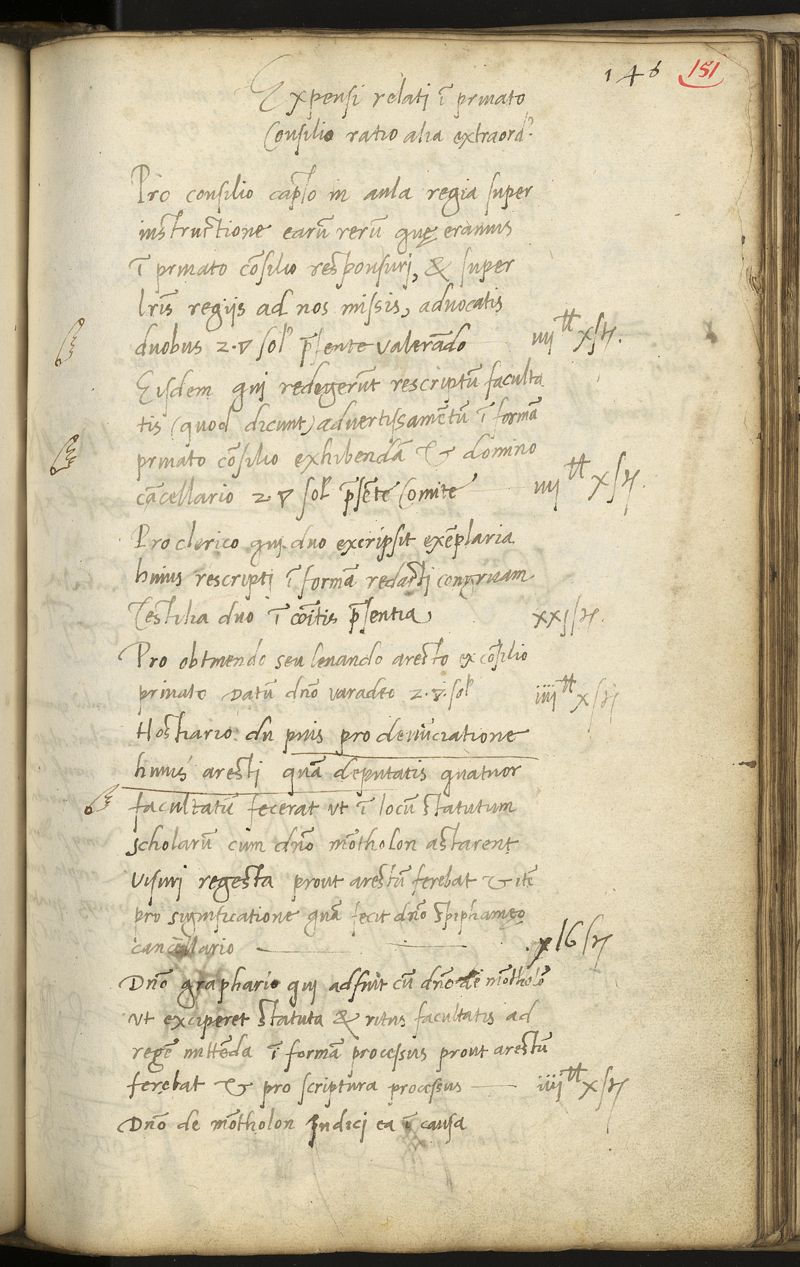 146 151
Expensi relati ī priuato
Consilio ratio alia extraord.
Pro consilio capto in aula regia super
instructione earū rerū quę eramus
ī priuato cōsilio responsuri, & super
lr̄is regijs ad nos missis, aduocatis
duobus 2. ▽ sol p̄sente valerādo iiij tt x ſ tz.
Eisdem qui redegerūt rescriptū faculta
tis (quod dicunt) advertissamētū ī formā
priuato cōsilio exhibendā & domino
cācellario 2 ▽ sol p̄sēte Comite iiij tt x ſ tz.
Pro clerico qui duo excripsit exēplaria
huius rescripti ī formā redacti
Testilia duo ī cōitis p̄sentia xxj ſ tz.
Pro obtinendo seu leuando aresto ex cōsilio
priuato Datū dn̄o varadeo 2. ▽. sol iiij tt x ſ tz
Hostiario du puis pro denūciatione
huius aresti quā deputatis quatuor
facultatū fecerat vt ī locū statutum
scholarū cum dn̄o mōtholon astarent
visuri regesta prout arestū ferebat & itē
pro significatione quā fecit dn̄o
cancellario x l6 ſ tz
Dn̄o graphario qui adfuit cū dn̄o de mōtholō
vt exciperet statuta & ritus facultatis ad
regē mittēda ī formā processus prout arestū
ferebat & pro scriptura processus iiij tt x ſ tz
Dn̄o de mōtholon Judici ea ī causa